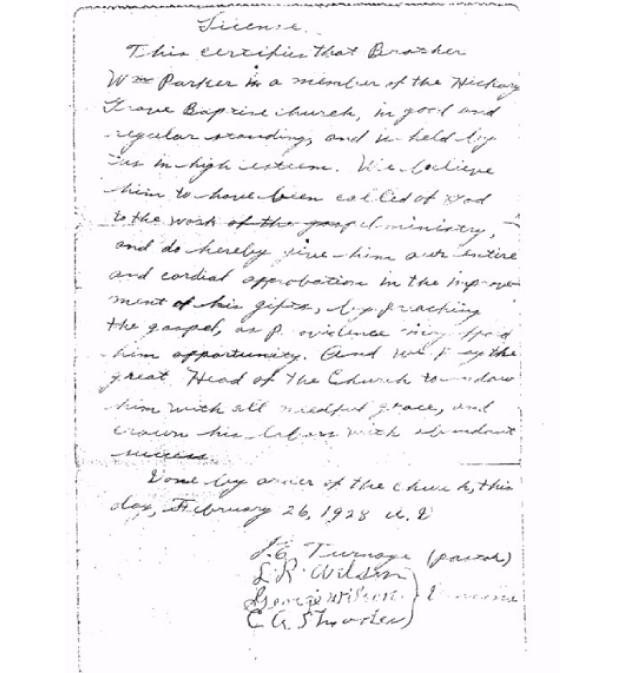 License.
This certifies that Brother
Wm Parker is a member of the Hickory
Grove Baptist church, in good and
regular standing, and is held by
us in high esteem. We believe
him to have been called of God
to the work of the gospel ministry,
and do hereby give him our entire
and cordial approbation in the improve
ment of his gifts, by preaching
the gospel, as providence may afford
him opportunity. And we pray the
great Head of the Church to endow
him with all needful grace, and
crown his labors with abundant
success
Done by order of the church, this
day, February 26, 1928 A.D
J.E. Turnage (pastor)
L.R. Wilson
George Wilson